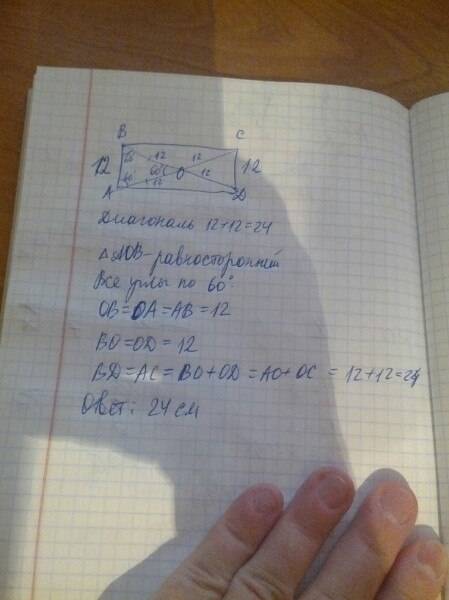 B C
60 12 12
12 60° O 12 12
60 12
A D
Диагональ 12+12=24
△AOB - равносторонний
Все углы по 60°.
OB=OA=AB=12
BO=OD=12
BD=AC=BO+OD=AO+OC=12+12=24
Ответ: 24 см